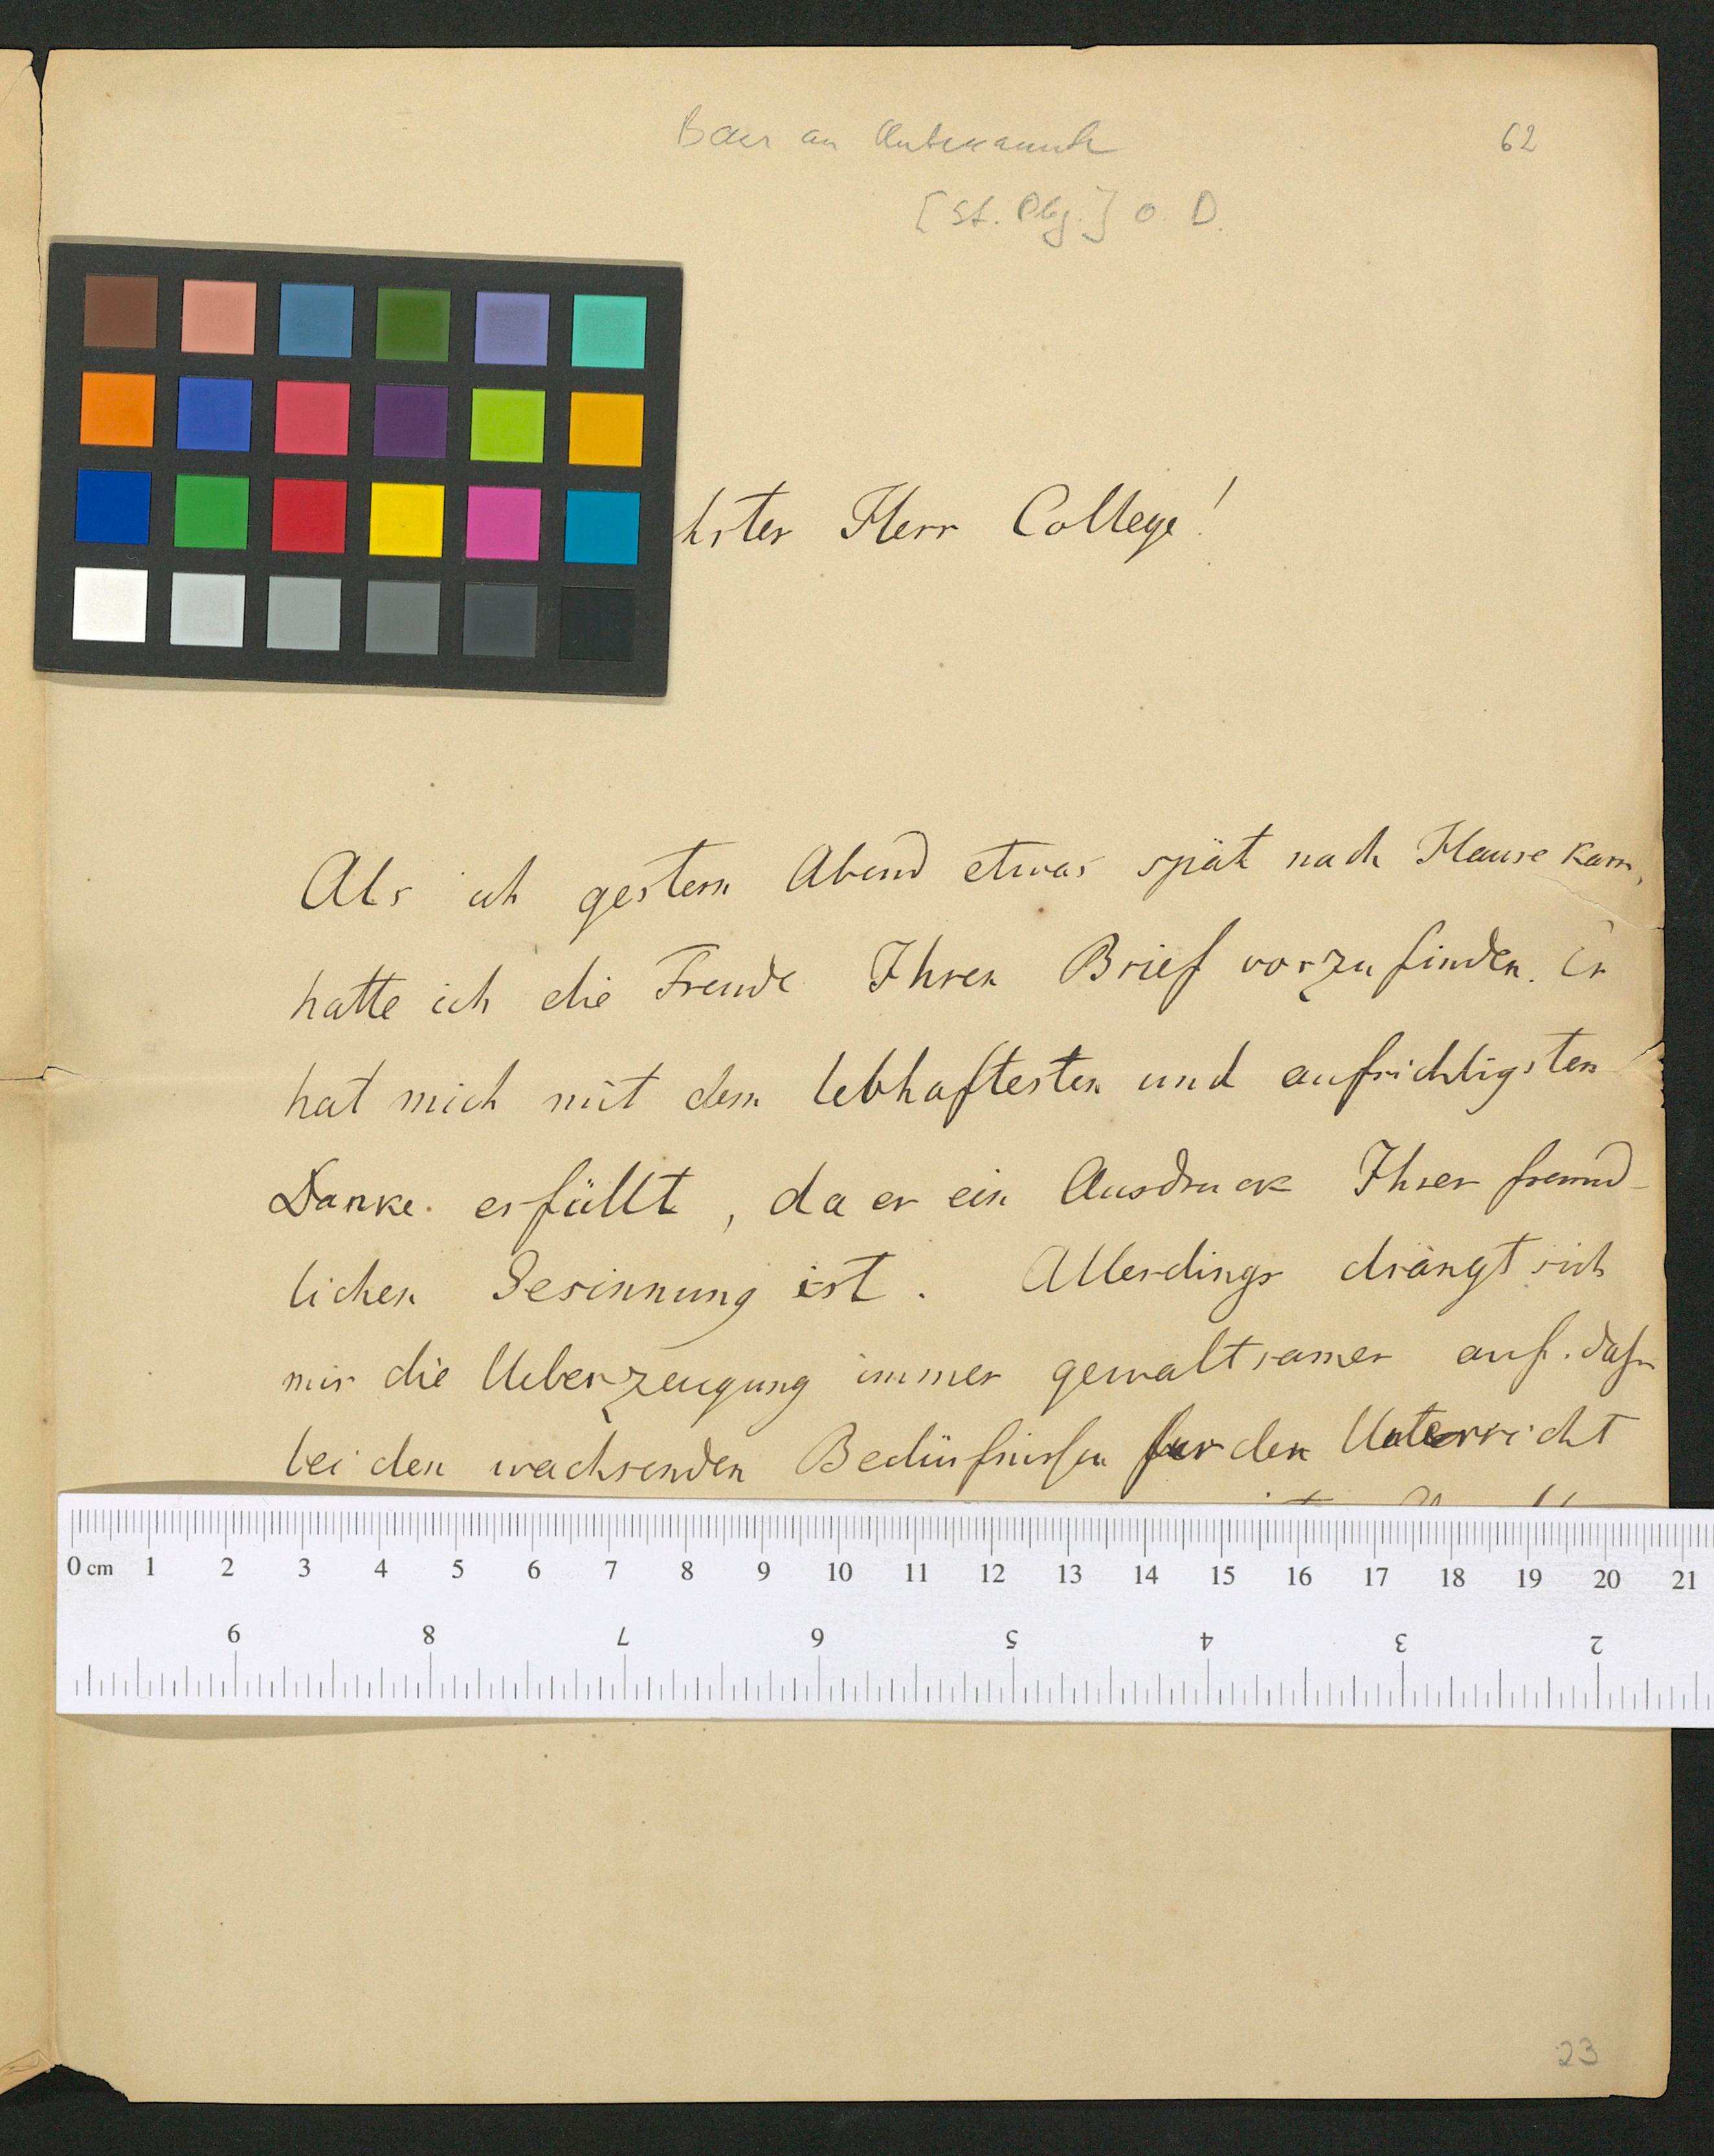 Baer an Unbekannt
62
[St. Pbg.] o. D.
hrter Herr College!
Als ich gestern Abend etwas spät nach Hause kam,
hatte ich die Freude Ihren Brief vorzufinden. Er
hat mich mit dem lebhaftesten und aufrichtigsten
Danke erfüllt, da er ein Ausdruck Ihrer freund-
lichen Gesinnung ist. Allerdings drängt sich
mir die Ueberzeugung immer gewaltsamer auf. daß
bei den wachsenden Bedürfnissen für den Unterricht
0 cm 1 2 3 4 5 6 7 8 9 10 11 12 13 14 15 16 17 18 19 20 21
9 8 7 6 5 4 3 2
23